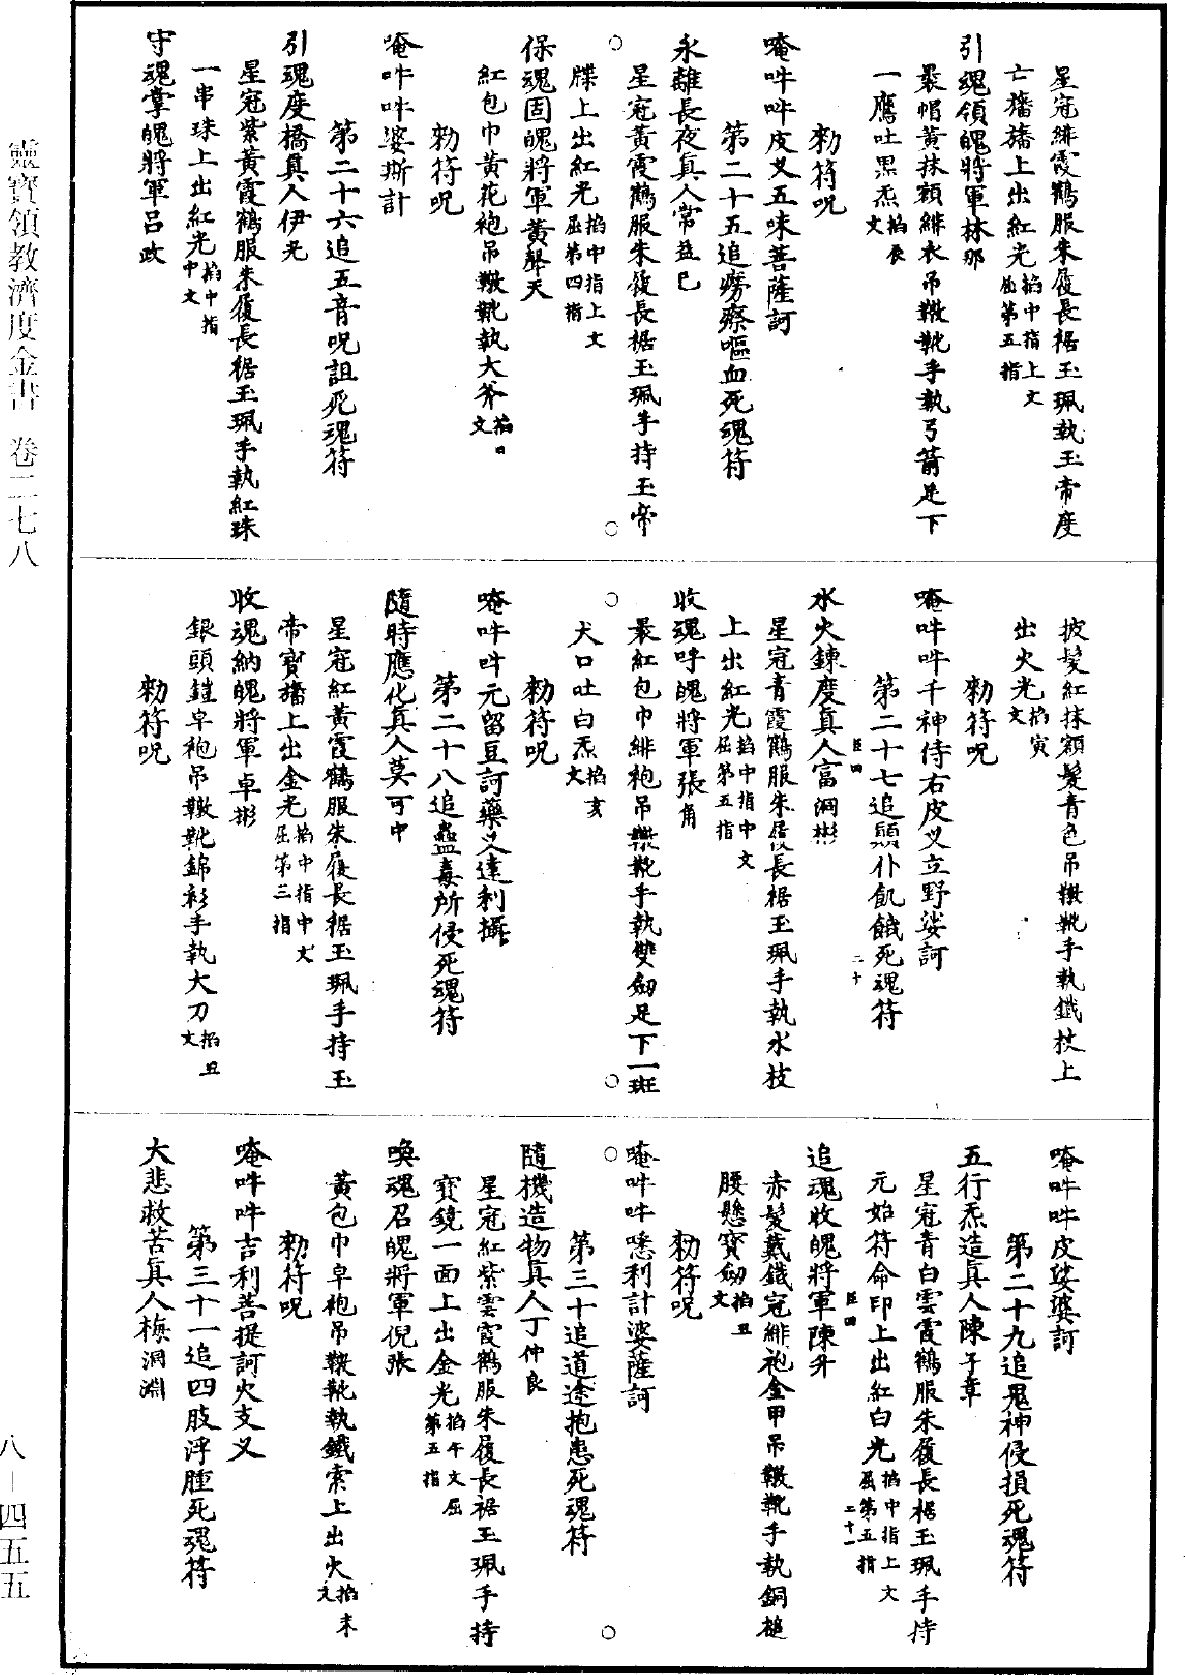 星冠緋霞鶴服朱履長裾玉珮執玉帝度
亡旛旛上出紅光掐中指上文屈第五指
引魂領魄將軍林那
裹帽黃抹額緋衣吊𩌏靴手執弓箭足下
一鷹吐黑炁掐辰文
勑符呪
唵吽吽皮叉五味菩薩訶
第二十五追癆瘵嘔血死魂符
永離長夜真人常益巳
星冠黃霞鶴服朱履長裾玉珮手持玉帝
牒上出紅光掐中指上文屈第四指
保魂固魄將軍黃聲天
紅包巾黃花袍吊𩌏靴執大斧掐文
勑符呪
唵吽吽婆撕計
第二十六追五音呪詛死魂符
引魂度橋真人伊光
星冠紫黃霞鶴服朱履長裾玉珮手執紅珠
一串珠上出紅光掐中指中文
守魂掌魄將軍呂政
披髮紅抹額髮青色吊𩌏靴手執鐵杖上
出火光掐寅文
勑符呪
唵吽吽千神侍右皮叉立野娑訶
第二十七追顛仆飢餓死魂符
水火鍊度真人富洞彬
星冠青霞鶴服朱履長裾玉珮手執水枝
上出紅光掐中指中文屈第五指
收魂呼魄將軍張角
裹紅包巾緋袍吊𩌏靴手執雙劒足下一斑
犬口吐白炁掐亥文
勑符呪
唵吽吽元留豆訶藥叉達利攝
第二十八追蠱毒所侵死魂符
隨時應化真人莫可中
星冠紅黃霞鶴服朱履長裾玉珮手持玉
帝寶旛上出金光掐中指中文屈第三指
收魂納魄將軍卓彬
銀頭鎧皁袍吊𩌏靴錦衫手執大刀掐丑文
勑符呪
唵吽吽皮娑婆訶
第二十九追鬼神侵損死魂符
五行炁造真人陳子章
星冠青白雲霞鶴服朱履長裾玉珮手持
元始符命印上出紅白光掐中指上文屈第五指
追魂收魄將軍陳升
赤髮戴鐵冠緋袍金甲吊𩌏靴手執銅槌
腰懸寶劒掐丑文
勑符呪
唵吽吽㗭利計婆薩訶
第三十追道途抱患死魂符
隨機造物真人丁仲良
星冠紅紫雲霞鶴服朱履長裾玉珮手持
寶鏡一面上出金光掐午文屈第五指
喚魂召魄將軍倪張
黃包巾皁袍吊𩌏靴執鐵索上出火掐未文
勑符呪
唵吽吽吉利菩提訶火支叉
第三十一追四肢浮腫死魂符
大悲救苦真人梅洞淵
靈寶領教濟度金書 卷二七八
八—四五五